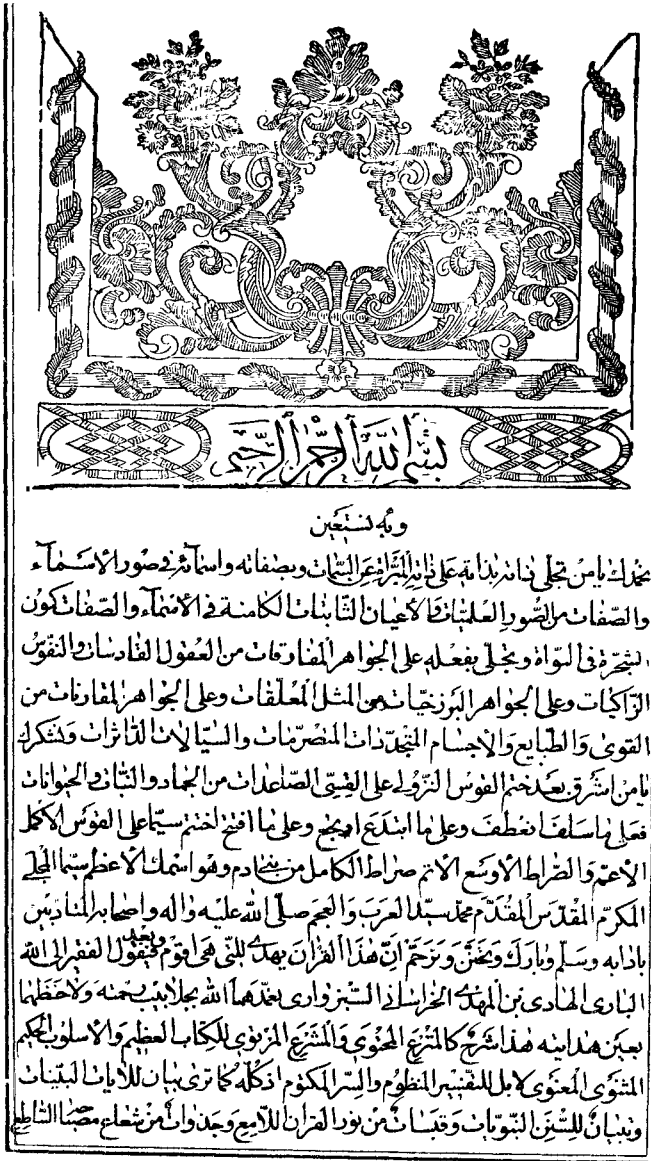 بسم الله الرحمن الرحيم
وبه نستعين
نحمدك يا من تجلى ذاته بذاته على ذاته المبراة عن السمات وبصفاته واسمائه في صور الاسماء
والصفات من الصور العلميات والاعيان الثابتات الكامنة في الاسماء والصفات كون
الشجرة في النواة وتجلى بفعله على الجواهر المفارقات من العقول القادسات والنفوس
الزاكيات وعلى الجواهر البرزخيات من المثل المعلقات وعلى الجواهر المقارنات من
القوى والطبايع والاجسام المتجددات المنصرمات والسيالات الداثرات ونشكرك
يا من اشرق بعد ختم القوس النزولي على القسي الصاعدات من الجماد والنبات والحيوانات
فعلى ما سلف انعطف وعلى ما ابتدع ارجع وعلى ما افتتح اختتم سيما على القوس الاكمل
الاعم والصراط الاوسع الاتم صراط الكامل من بني ادم وهو اسمك الاعظم سيما المجلى
المكرم المقدس المقدم محمد سيد العرب والعجم صلى الله عليه واله واصحابه المتادبين
بادابه وسلم وبارك وتحنن وترحم ان هذا القران يهدي للتي هي اقوم وبعد فيقول الفقير الى الله
الباري الهادي بن المهدي الخراساني السبزواري تغمدهما الله بجلابيب رحمته ولاحظهما
بعين هدايته هذا شرح كالمترع المحتوي والمشرع المرتوي للكتاب العظيم والاسلوب الحكيم
المثنوي المعنوي لا بل للتفسير المنظوم والسر المكتوم اذ كله كما ترى بيان للايات البينات
وتبيان للسنن النبويات وقبسات من نور القران اللامع وجذوات من شعاع مصباحه الساطع